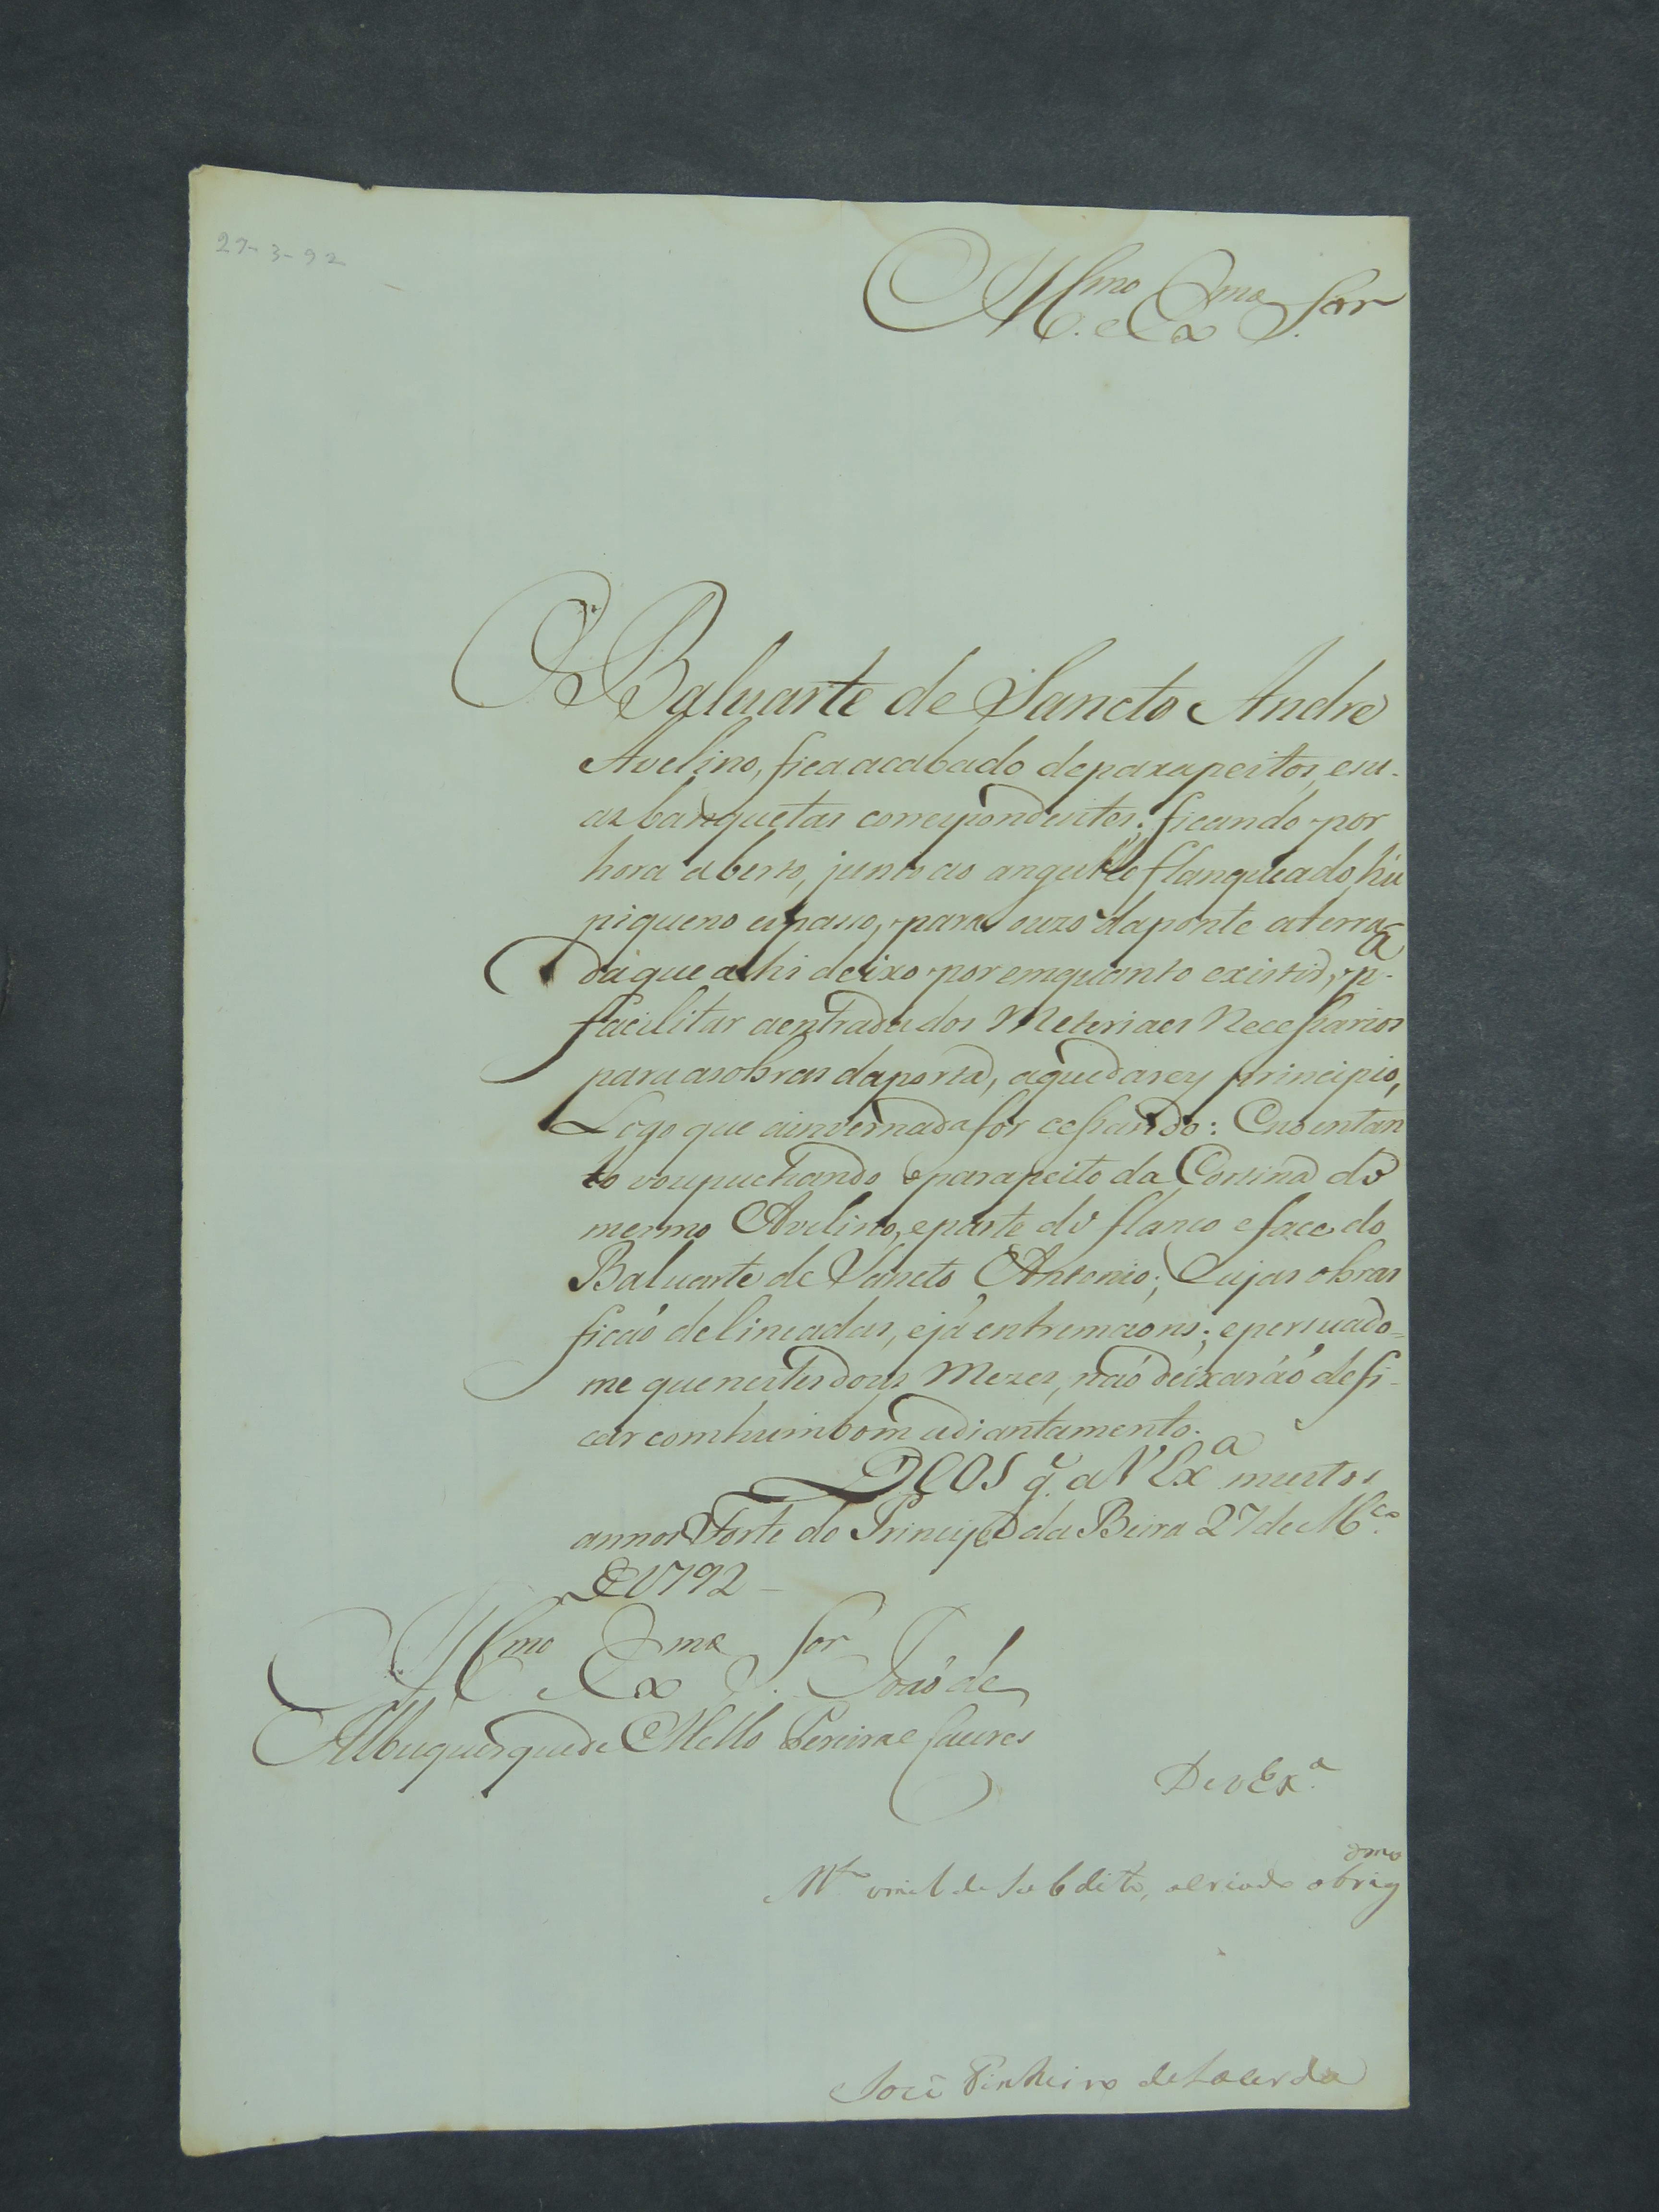 27-3-92
Ill.mo e Ex.mo S.or
O Baluarte de Sancto Andre
Avelino, fica acabado de parapeitos, e su-
as banquetas correspondentes; ficando por
hora aberto, junto ao angullo flanqueado, hú
piqueno espasso, para o uzo da ponte aterra
da que alhi deixo por emquanto existir, p.a
facilitar a entrada dos Meteriaes Necessarios
para as obras da porta, a que darey principio,
Logo que a invernada for cessando: E no entan
to vou puchando o parapeito da Cortina do
mesmo Avelino, e parte do flanco e face do
Baluarte de Sancto Antonio; Cujas obras
ficaó delineadas, e já entremaons; e persuado-
me que nestes dous Mezes, naó deixaráó de fi-
car com hum bom adiantamento.
DEOS g.e a V Ex.a muitos
annos Forte do Principe da Beira 27 de M.ço
de 1792
Ill.mo e Ex.mo S.or Joaó de
Albuquerque de Mello Pereira e Caceres
De V Ex.a
M.to umilde Subdito, e criado obrig.dmo
José Pinheiro de Lacerda